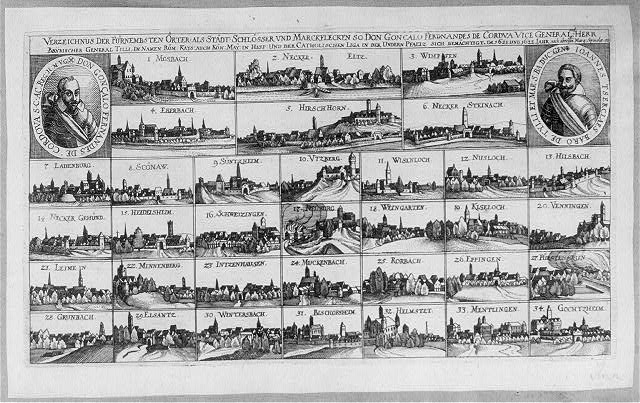 VERZEICHNUS DER FÜRNEMBSTEN ÖRTER ALS STÄDT SCHLÖSSER UND MARCKFLECKEN SO DON GONÇALO FERNANDES DE CORDVA VICE GENERAL, HERR
BAYRISCHER GENERAL TILLI, IM NAMEN RÖM. KAYS. AUCH KÖN. MAY. IN HISP. UND DER CATHOLISCHEN LIGA IN DER UNDERN PFALTZ SICH BEMÄCHTIGT, DE 1621 UND 1622 JAHR.
DON GONÇALO FERNANDES DE CORDOVA
IOANNES TSERCLAES BARO DE TYLLI
1 MOSBACH
2. NECKER- ELTZ.
3. WIMPFEN
4. EBERBACH
5. HIRSCHHORN.
6. NECKER STEINACH.
7. LADENBURG.
8. SCÖNAW.
9. SUNTZHEIM.
10. VTZBERG.
11. WISENLOCH
12. NUSLOCH.
13. HILSBACH.
14. NECKER GEMÜND.
15. HEIDELSHEIM.
16. SCHWETZINGEN.
18. WEINGARTEN.
19. KISELOCH.
20. VENNINGEN.
21. LEIMEN
22. MINNENBERG.
23. INTZENHAUSEN.
24. MECKENBACH.
25. RORBACH.
26. EPPINGEN.
28. GRUNBACH.
29. ELSANTZ.
30. WINTERSBACH.
31. BISCHOFSHEIM
32. HELMSTET.
33. MENTLINGEN.
34. GOCHTZHEIM.